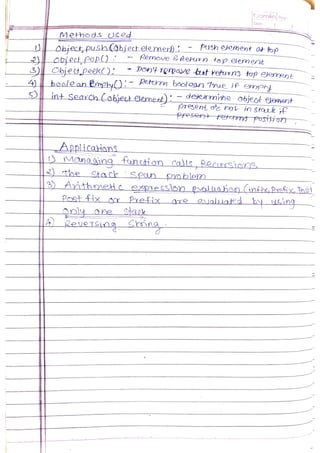 Methods Used
1) Object,push(Object element): - Push element at top
2) Object,Pop(): - Remove & Return top element
3) Object,peek(): - Don't remove but returns top element
4) boolean Empty(): - Return boolean True if empty
5) int Search (object element): - determine object element
present or not in stack if
present returns position.
Applications
1) Managing function calls, Recursions
2) The Stack Span problem
3) Arithmetic expression evaluation (infix, Prefix, Post
Post fix or Prefix are evaluated by using
only one stack
4) Reversing String.